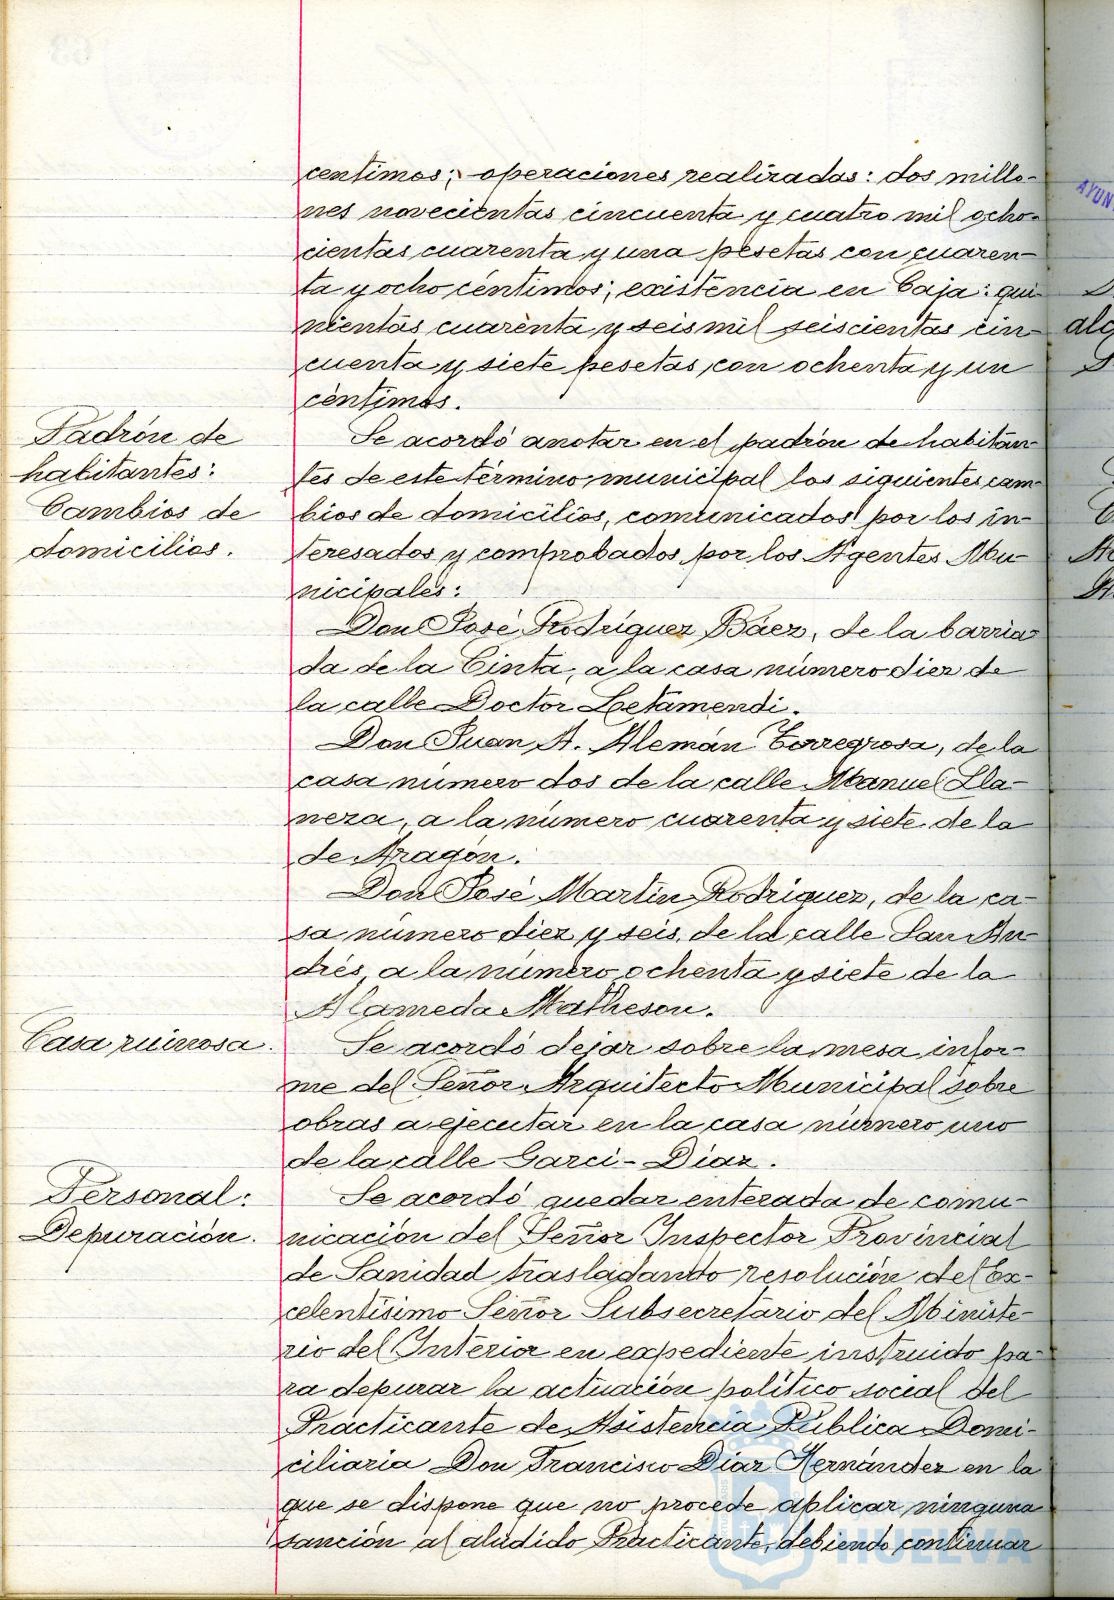 centimos; operaciones realizadas: dos millo-
nes novecientas cincuenta y cuatro mil ocho-
cientas cuarenta y una pesetas con cuaren-
ta y ocho céntimos; existencia en Caja: qui-
nientas cuarenta y seis mil seiscientas cin-
cuenta y siete pesetas con ochenta y un
céntimos.
Padrón de
habitantes:
Cambios de
domicilios.
Se acordó anotar en el padrón de habitan-
tes de este término municipal los siguientes cam-
bios de domicilios, comunicados por los in-
teresados y comprobados por los Agentes Mu-
nicipales:
Don José Rodríguez Báez, de la barria-
da de la Cinta, a la casa número diez de
la calle Doctor Letamendi.
Don Juan A. Alemán Torregrosa, de la
casa número dos de la calle Manuel Lla-
neza, a la número cuarenta y siete de la
de Aragón.
Don José Martín Rodriguez, de la ca-
sa número diez y seis de la calle San An-
drés, a la número ochenta y siete de la
Alameda Matheson.
Casa ruinosa.
Se acordó dejar sobre la mesa infor-
me del Señor Arquitecto Municipal sobre
obras a ejecutar en la casa número uno
de la calle Garci-Díaz.
Personal:
Depuración.
Se acordó quedar enterada de comu-
nicación del Señor Inspector Provincial
de Sanidad trasladando resolución del Ex-
celentísimo Señor Subsecretario del Ministe-
rio del Interior en expediente instruido pa-
ra depurar la actuación político social del
Practicante de Asistencia Pública Domi-
ciliaria Don Francisco Díaz Hernández en la
que se dispone que no procede aplicar ninguna
sanción al aludido Practicante, debiendo continuar
HUELVA
AYUN
alc